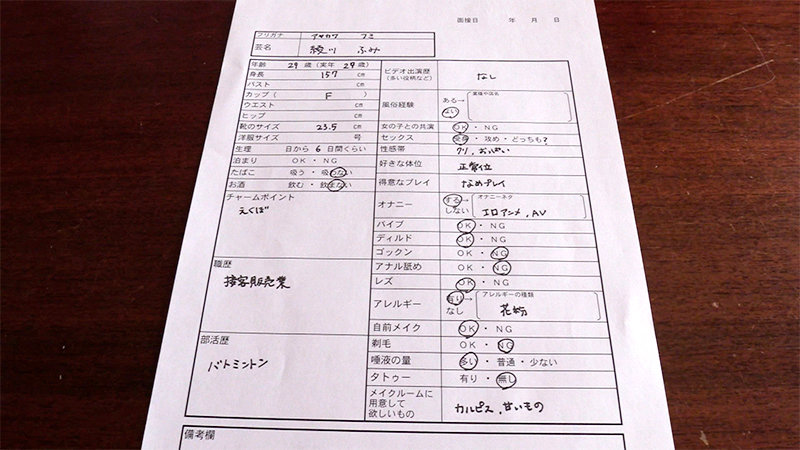 面接日 年 月 日
フリガナ アヤカワ フミ
芸名 綾川 ふみ
年齢 29 歳 (実年 29 歳)
身長 157 cm
バスト cm
カップ ( F )
ウエスト cm
ヒップ cm
靴のサイズ 23.5 cm
洋服サイズ 号
生理 日から 6 日間くらい
泊まり OK ・ NG
たばこ 吸う ・ 吸わない
お酒 飲む ・ 飲まない
チャームポイント
えくぼ
職歴
接客販売業
部活歴
バトミントン
ビデオ出演歴 なし
(多い役柄など)
風俗経験 ある→ 業種や店名
ない
女の子との共演 OK ・ NG
セックス 受身 ・ 攻め ・ どっちも?
性感帯 クリ、おっぱい
好きな体位 正常位
得意なプレイ なめプレイ
オナニー する→ オナニーネタ
しない エロアニメ、AV
バイブ OK ・ NG
ディルド OK ・ NG
ゴックン OK ・ NG
アナル舐め OK ・ NG
レズ OK ・ NG
アレルギー 有り→ アレルギーの種類
なし 花粉
自前メイク OK ・ NG
剃毛 OK ・ NG
唾液の量 多い ・ 普通 ・ 少ない
タトゥー 有り ・ 無し
メイクルームに
用意して
欲しいもの カルピス、甘いもの
備考欄